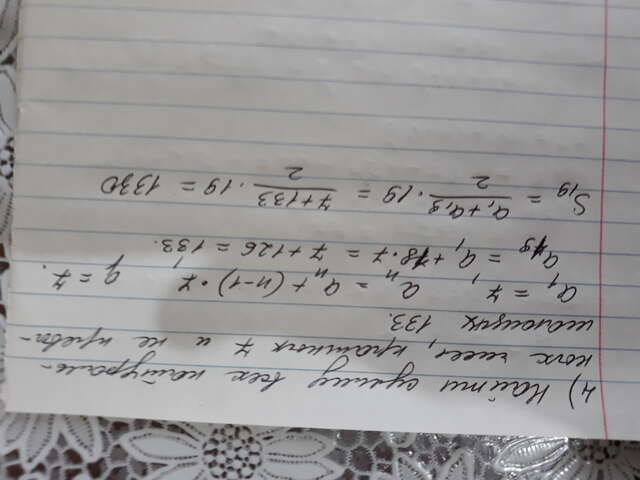 4) Найти сумму всех натураль-
ных чисел, кратных 7 и не превы-
шающих 133.
a₁ = 7, aₙ = aₙ + (n-1)·7 q = 7.
a₁₉ = a₁ + 18·7 = 7 + 126 = 133.
S₁₉ = (a₁ + a₁₉)/2 · 19 = (7 + 133)/2 · 19 = 1330